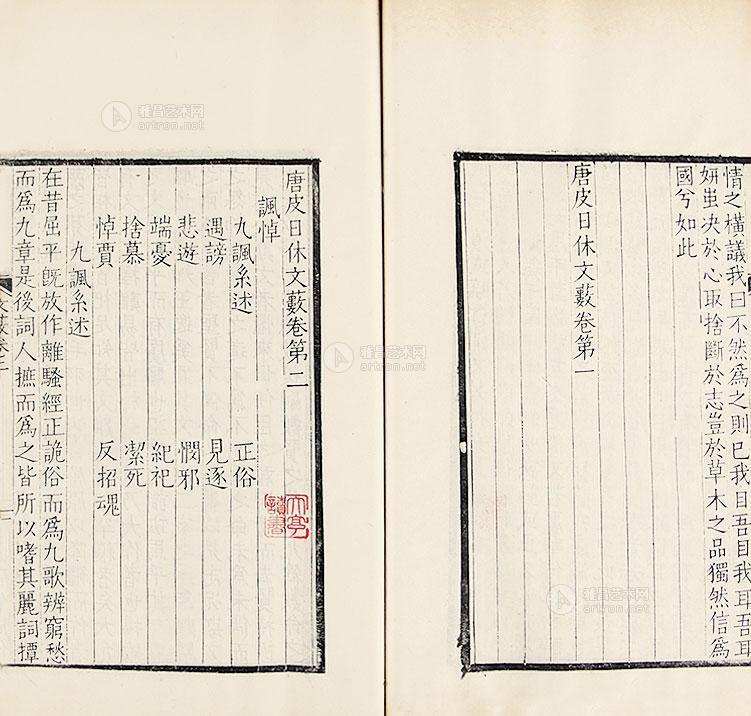 情之橫議我曰不然為之則已我目吾目我耳吾耳
妍蚩决於心取捨斷於志豈於草木之品獨然信為
國兮如此
唐皮日休文藪卷第一
唐皮日休文藪卷第二
諷悼
九諷系述 正俗
遇謗 見逐
悲遊 憫邪
端憂 紀祀
捨慕 潔死
悼賈 反招魂
九諷系述
在昔屈平既放作離騷經正詭俗而為九歌辨窮愁
而為九章是後詞人摭而為之皆所以嗜其麗詞撢
讀書
雅昌艺术网
artron.net
雅昌艺术网
artron.net
雅昌艺术网
artron.net